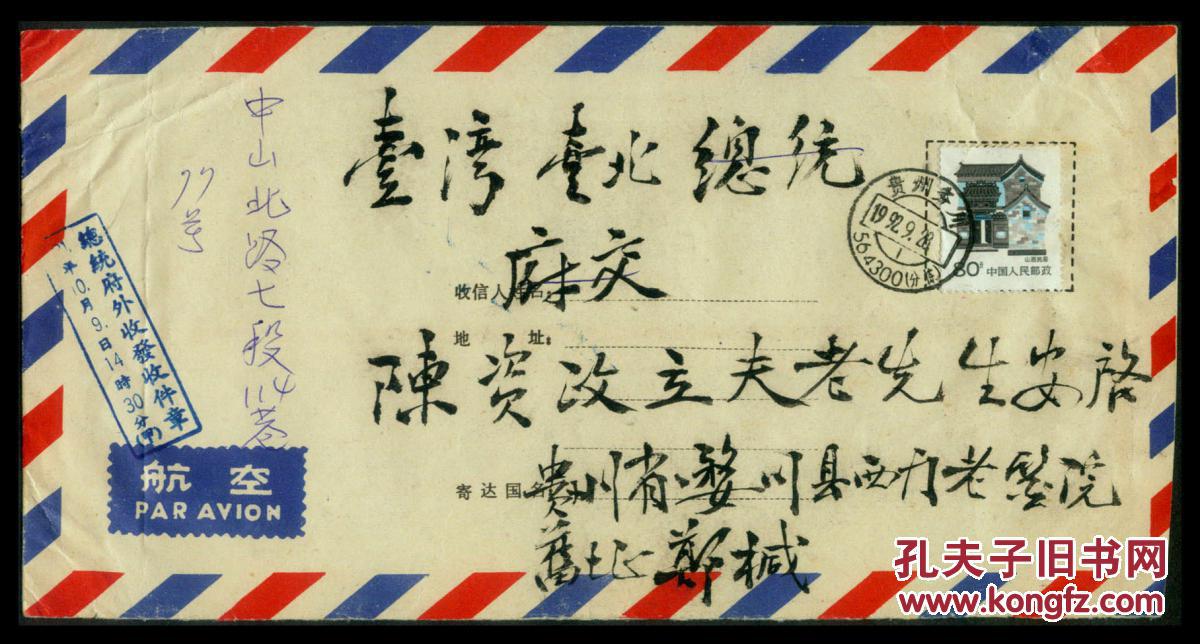 臺灣臺北總统
府交
陳資政立夫老先生安啓
贵州省婺川县西门老醫院
舊址郑械
中山北路七段114巷
77号
總統府外收發收件章
年10.月9.日14時30分(甲)
收信人姓名:
地 址:
寄达国名
航空
PAR AVION
贵州务川
1992.9.28
564300(分拣)
山西民居
80分 中国人民邮政
孔夫子旧书网
www.kongfz.com